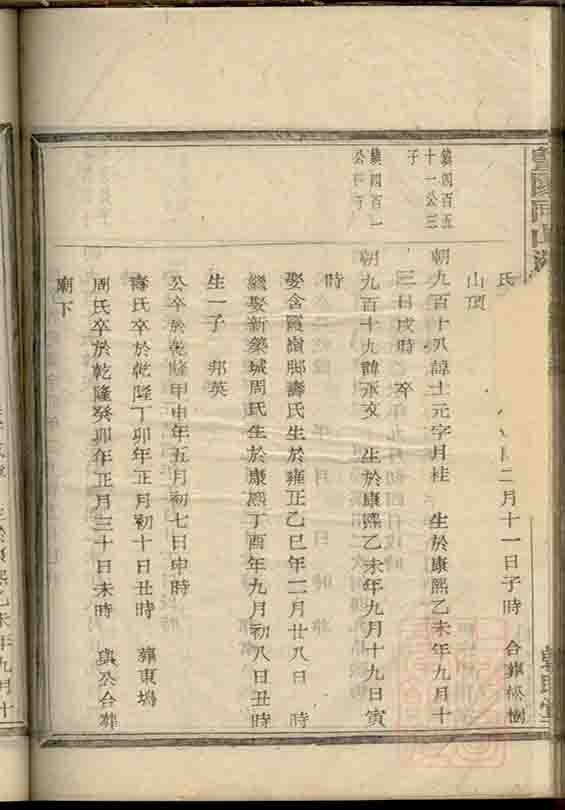 氏
二月十一日子時　合葬松樹
山頂
鎮四百五
十一公三
子
朝九百十八諱士元字月桂　生於康熙乙未年九月十
三日戌時　卒
鎮四百一
公　子
朝九百十九諱永文　生於康熙乙未年九月十九日寅
時
娶含霞嶺脚壽氏生於雍正乙巳年二月廿八日　時
繼娶新築城周氏生於康熙丁酉年九月初八日丑時
生一子　邦英
公卒於乾隆甲申年五月初七日申時
壽氏卒於乾隆丁卯年正月初十日丑時　葬東塢
周氏卒於乾隆癸卯年正月三十日未時　與公合葬
廟下
熙乙未年九月十